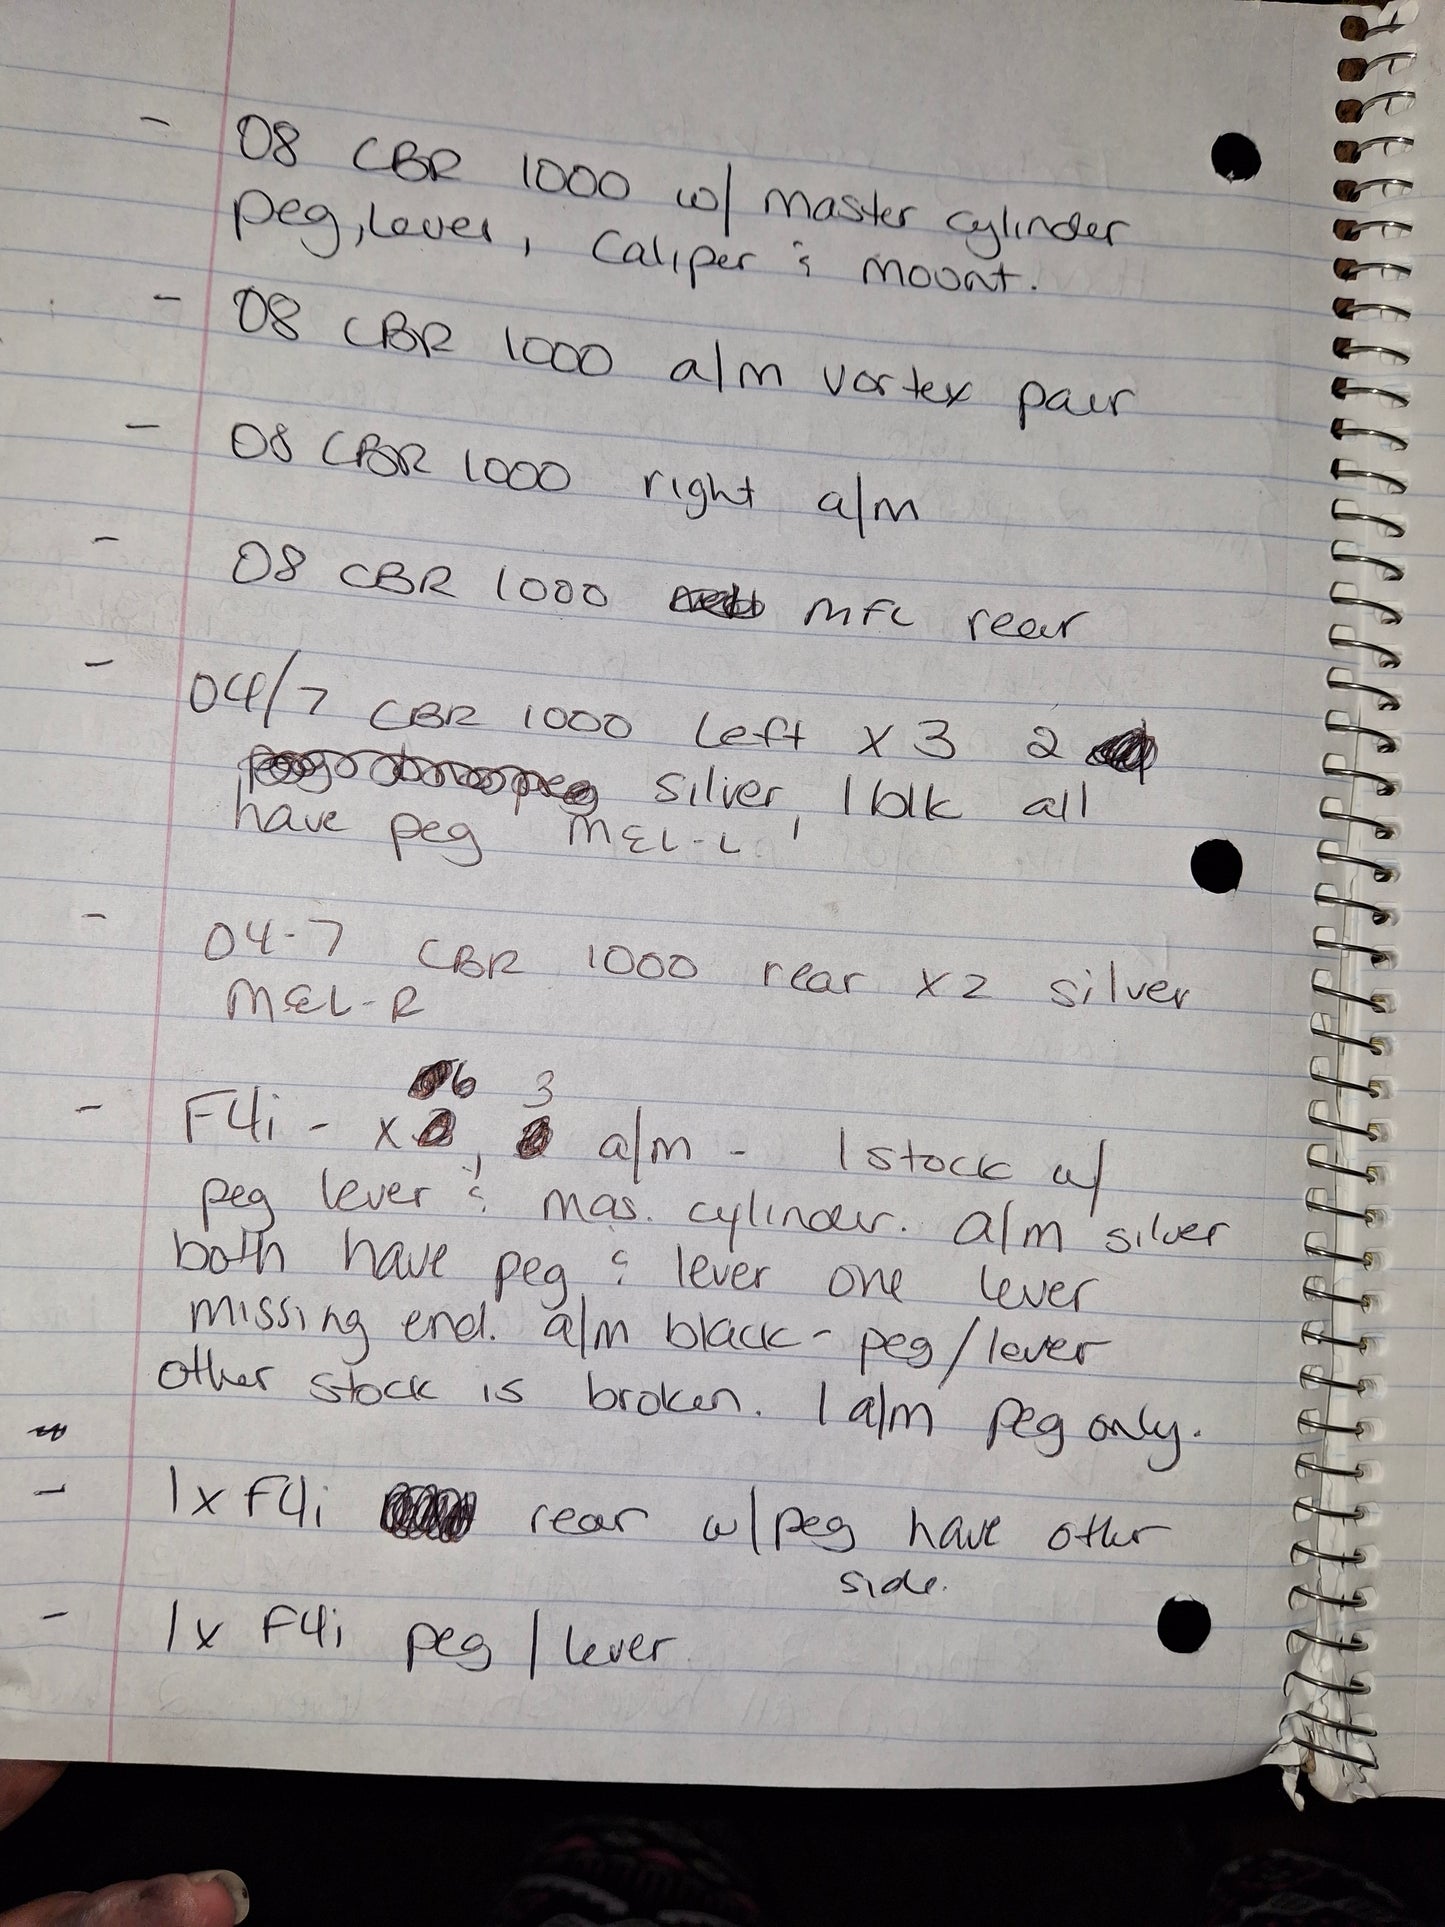 - 08 CBR 1000 w/ master cylinder
peg, lever, caliper & mount.
- 08 CBR 1000 a/m vortex pair
- 08 CBR 1000 right a/m
- 08 CBR 1000 MFL rear
- 04/7 CBR 1000 left x3 2
silver, 1 blk all
have peg M&L-L
- 04-7 CBR 1000 rear x2 silver
M&L-R
6 3
- F4i - x , a/m - 1 stock w/
peg lever & mas. cylinder. a/m silver
both have peg & lever one lever
missing end. a/m black - peg/lever
other stock is broken. 1 a/m peg only.
- 1x F4i rear w/peg have other
side.
- 1x F4i peg / lever